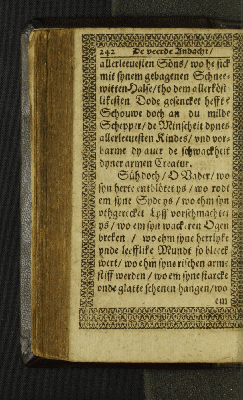 242 De veerde Andacht/
allerleuesten Söns/ wo he sick
mit synem gebagenen Schnee-
witten Halse/ tho dem allerköst-
likesten Dode gesencket hefft:
Schouwe doch an du milde
Schepper/ de Minscheit dynes
allerleuesten Kindes/ vnd vor-
barme dy auer de schwackheit
dyner armen Creatur.
Süh doch/ O Vader/ wo
syn herte entblötet ys/ wo rodt
em syne Syde ys/ wo ehm syn
vthgerecket Lyff vorschmachtet
ys/ wo em syn wackeren Ogen
breken/ wo ehm syne herrlyke
vnde leefflike Mundt so bleeck
wert/ wo ehm syne rischen arme
stiff werden/ wo em syne starcke
vnde glatte schenen hangen/ wo
em